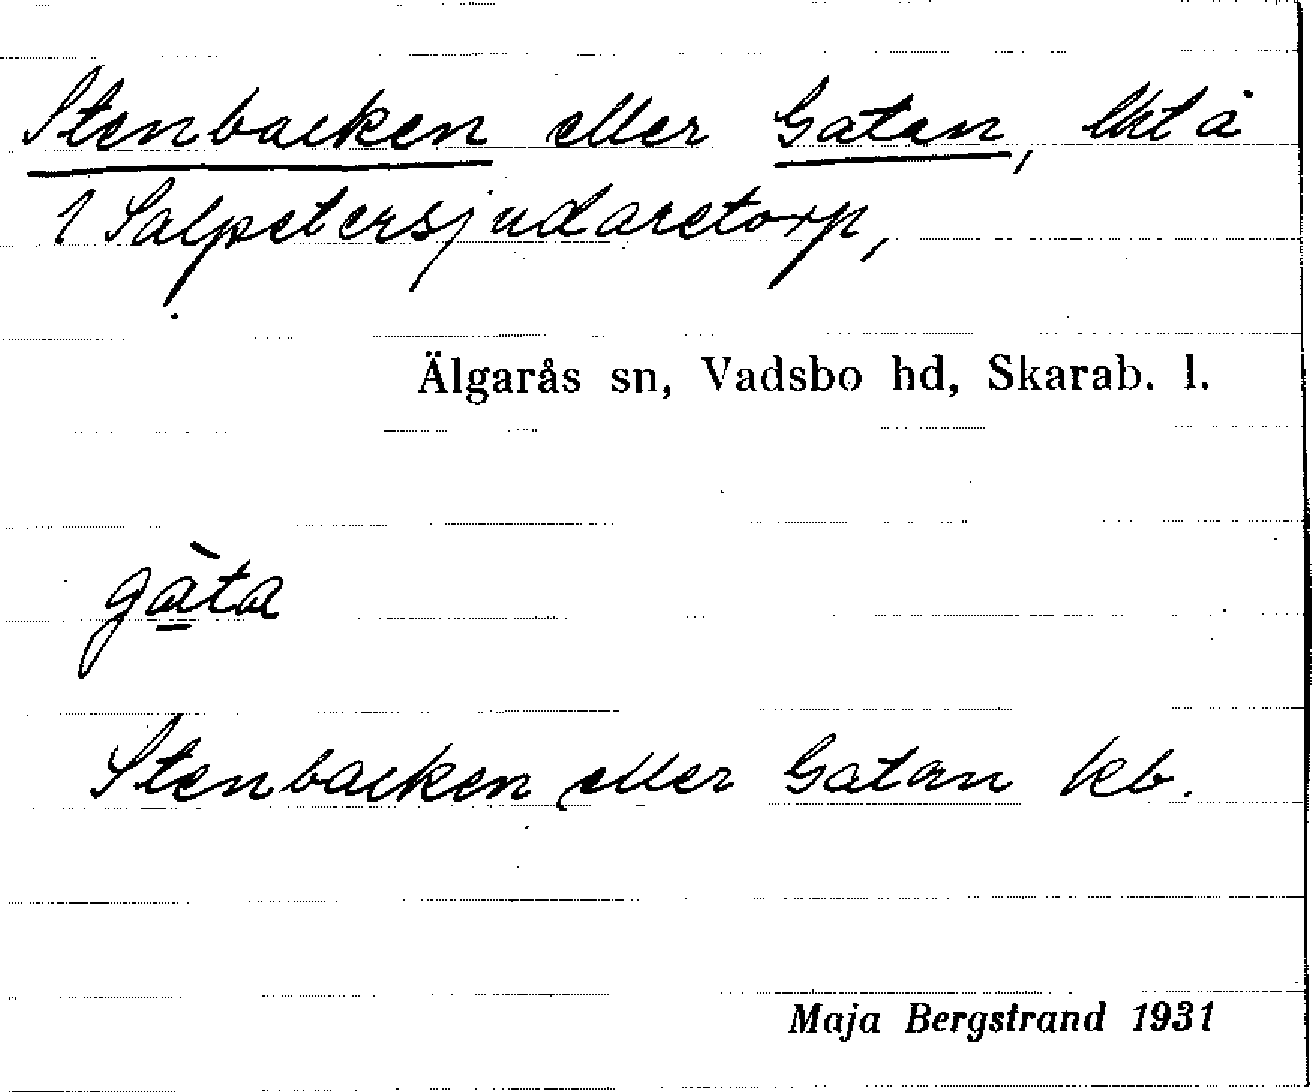 Stenbacken eller Gatan, lht å
1 Salpetersjudaretorp,
Älgarås sn, Vadsbo hd, Skarab. l.
gàta
Stenbacken eller Gatan kb.
Maja Bergstrand 1931